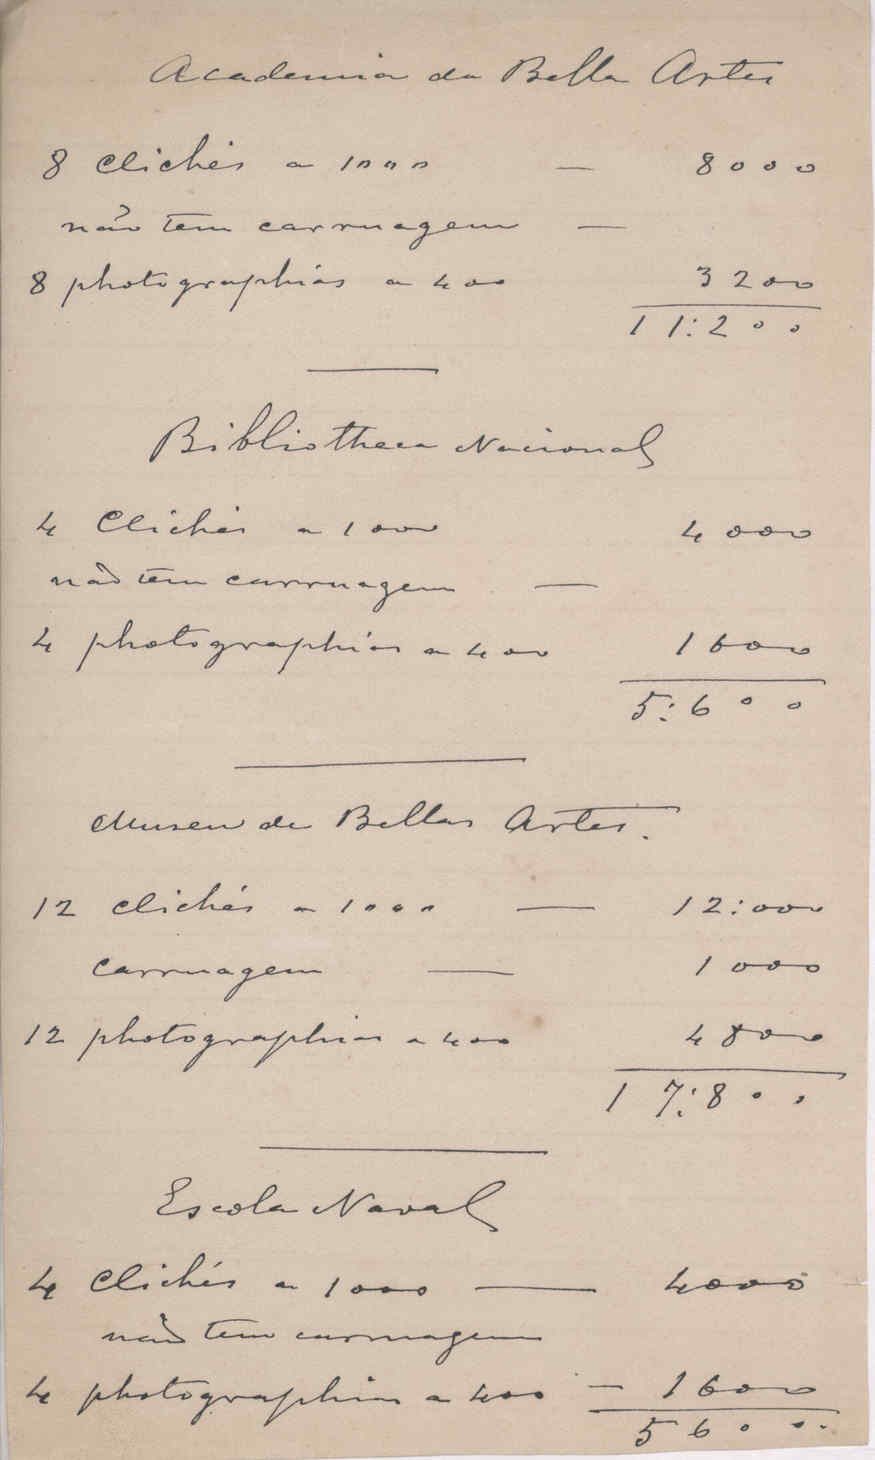 Academia da Bella Artes
8 clichés a 1000 — 8000
não tem carruagem —
8 photographias a 400 3200
11:200
Bibliotheca Nacional
4 Clichés a 1000 4000
não tem carruagem —
4 photographias a 400 1600
5:600
Museu de Bellas Artes.
12 clichés a 1000 — 12:000
carruagem — 1000
12 photographias a 400 4800
17:800
Escola Naval
4 clichés a 1000 — 4000
não tem carruagem
4 photographias a 400 — 1600
5600